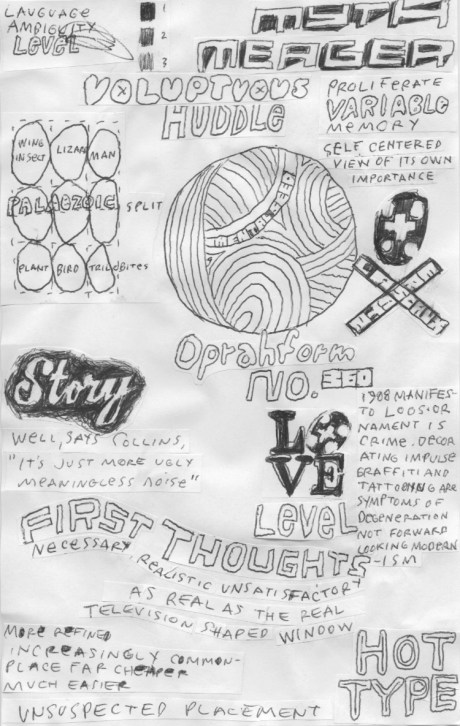 LAUGUAGE
AMBIGUITY
LEVEL
1
2
3
MYTH
MERGER
VOLUPTUOUS
HUDDLE
PROLIFERATE
VARIABLE
MEMORY
SELF CENTERED
VIEW OF ITS OWN
IMPORTANCE
WING INSECT
LIZARD
MAN
PALAEOZOIC
SPLIT
PLANT
BIRD
TRILOBITES
Oprahform
NO. 360
Story
WELL, SAYS COLLINS,
"IT'S JUST MORE UGLY
MEANINGLESS NOISE"
LOVE
LEVEL
1908 MANIFES-
TO LOOS·OR
NAMENT IS
CRIME. DECOR
ATING IMPULSE
GRAFFITI AND
TATTOOING ARE
SYMPTOMS OF
DEGENERATION
NOT FORWARD
LOOKING MODERN
-ISM
FIRST THOUGHTS
NECESSARY, REALISTIC UNSATISFACTORY
AS REAL AS THE REAL
TELEVISION SHAPED WINDOW
MORE REFINED
INCREASINGLY COMMON-
PLACE FAR CHEAPER
MUCH EASIER
HOT
TYPE
UNSUSPECTED PLACEMENT